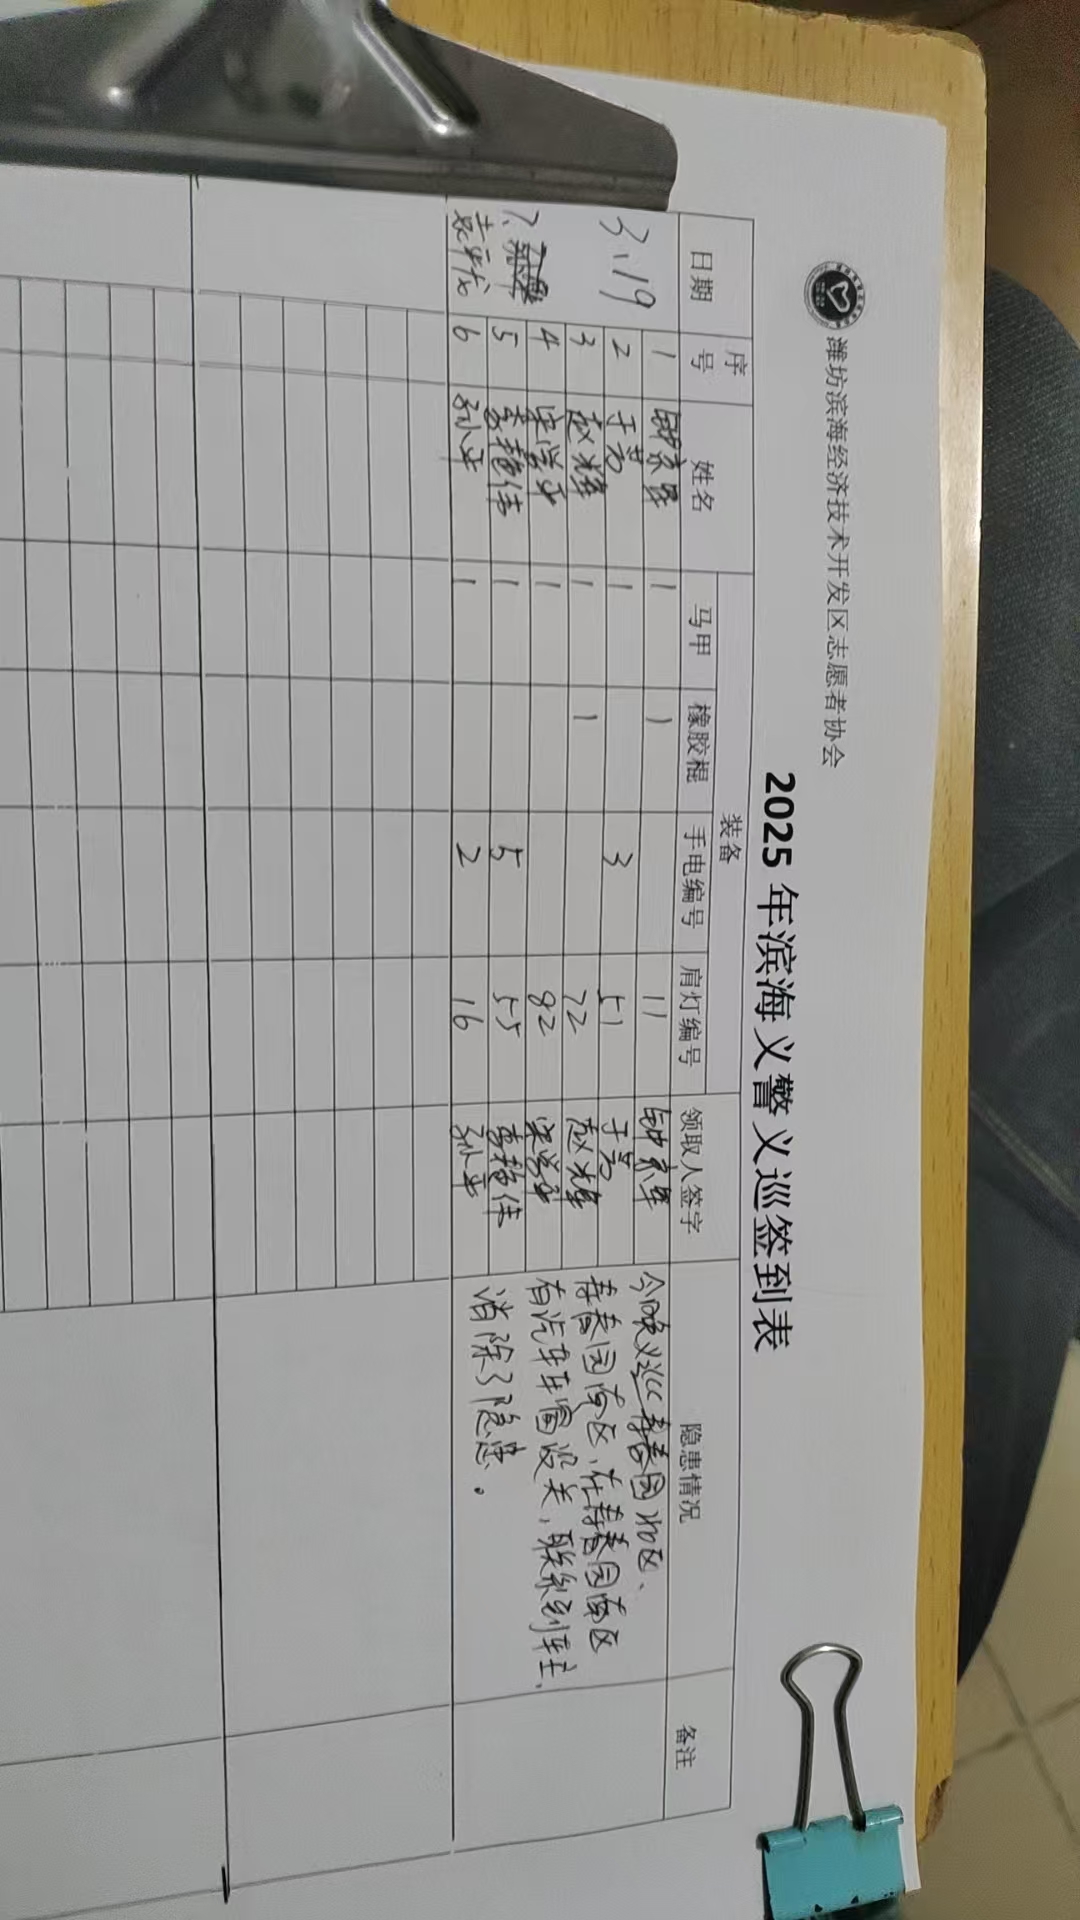 潍坊滨海经济技术开发区志愿者协会
2025年滨海义警义巡签到表
日期 序号 姓名 装备 领取人签字 隐患情况 备注
马甲 橡胶棍 手电编号 肩灯编号
3.19
1 1 1 11
2 于芳 1 3 51 于芳
3 赵辉 1 1 72 赵辉
4 宋学平 1 82 宋学平
5 李艳伟 1 5 55 李艳伟
6 孙平 1 2 16 孙平
今晚义巡寿春园北区、
寿春园南区,在寿春园南区
有汽车车窗没关,联系到车主,
消除了隐患。